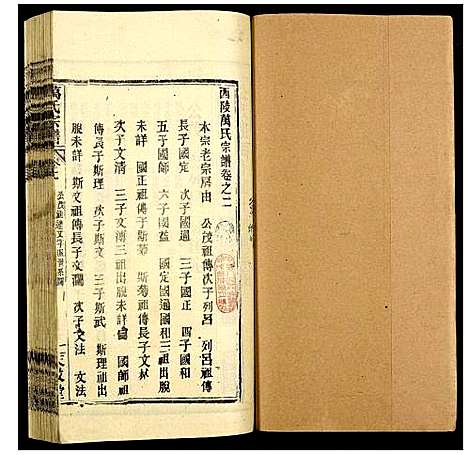 西陵萬氏宗譜卷之二
本宗老宗居由　公茂祖傳次子列呂　列呂祖傳
長子國定　次子國通　三子國正　四子國和
五子國師　國定國通國和三祖出脫
未詳　國正祖傳子斯菊　斯菊祖傳長子文林
次子文清　三子文溥三祖出脫未詳　國師祖
傳長子斯理　次子斯文　三子斯武　斯理祖出
脫未詳　斯文祖傳長子文瀾　次子文法　文法
萬氏宗譜